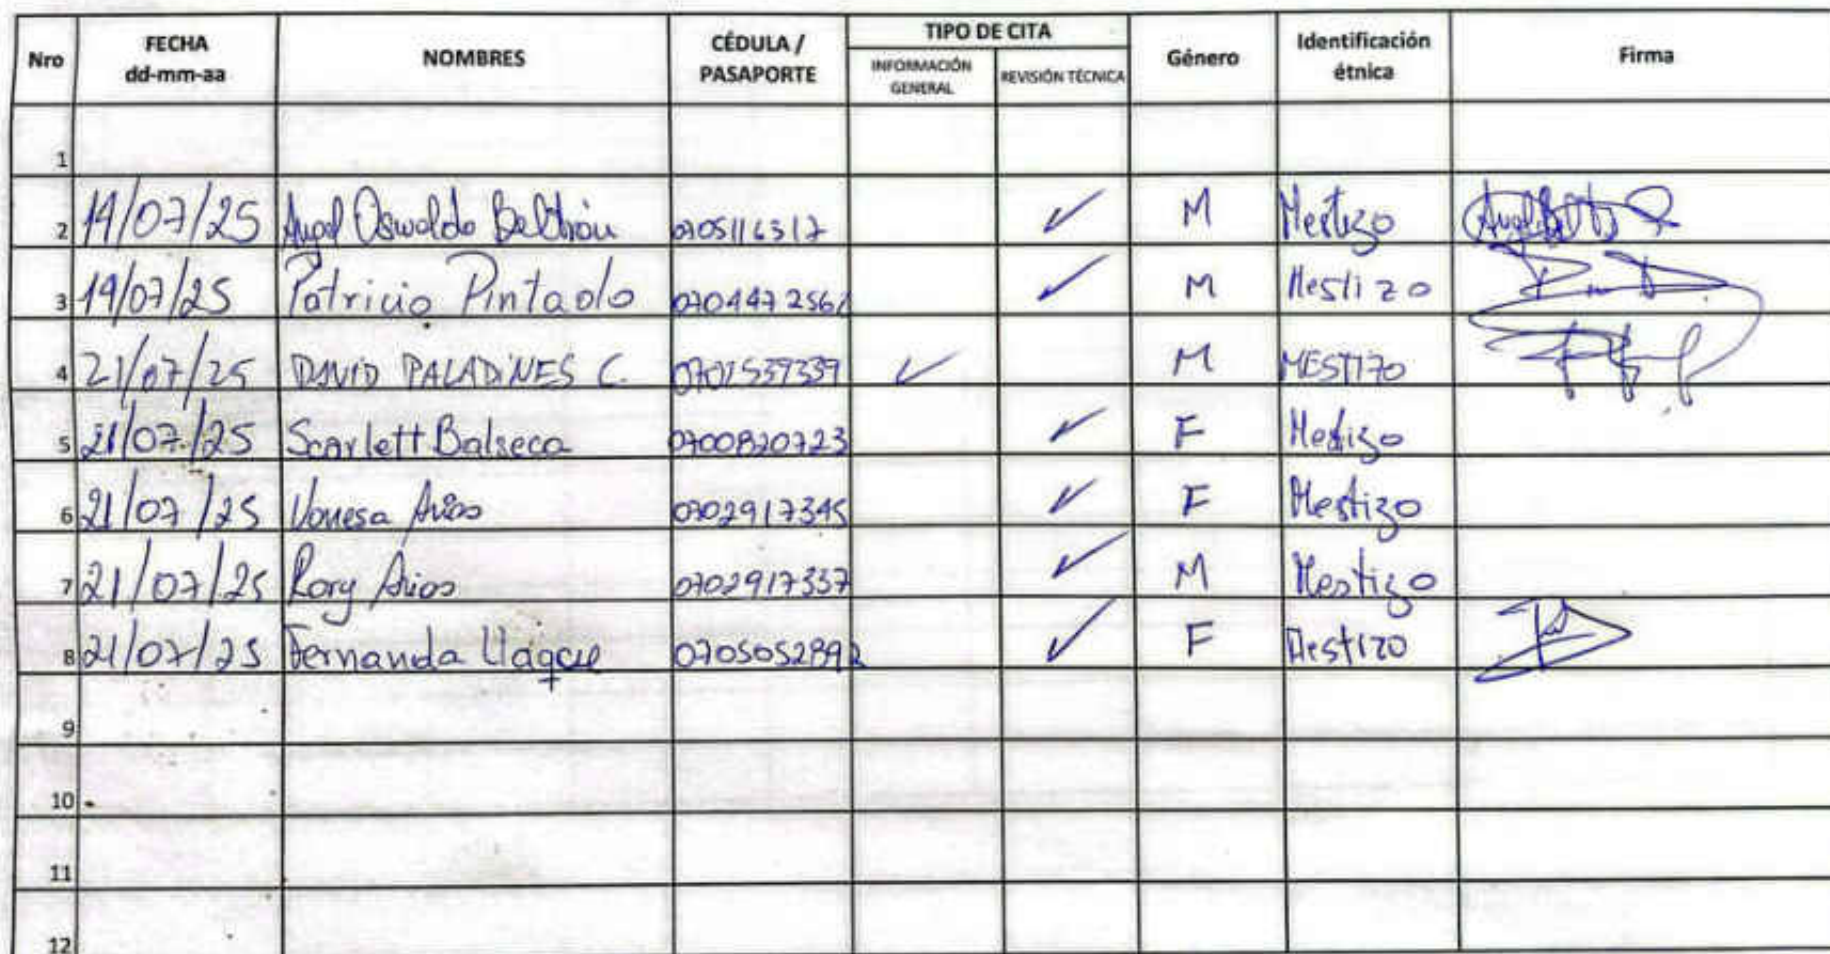 Nro FECHA dd-mm-aa NOMBRES CÉDULA / PASAPORTE TIPO DE CITA INFORMACIÓN GENERAL REVISIÓN TÉCNICA Género Identificación étnica Firma
1
2 14/07/25 Angel Oswaldo Beltrán 0705116317 ✓ M Mestizo
3 14/07/25 Patricio Pintado 0704472561 ✓ M Mestizo
4 21/07/25 DAVID PALADINES C. ✓ M MESTIZO
5 21/07/25 Scarlett Balseca 0700820723 ✓ F Mestizo
6 21/07/25 Vanesa Arias 0702917345 ✓ F Mestizo
7 21/07/25 Rory Arias 0702917337 ✓ M Mestizo
8 21/07/25 Fernanda ✓ F Mestizo
9
10
11
12